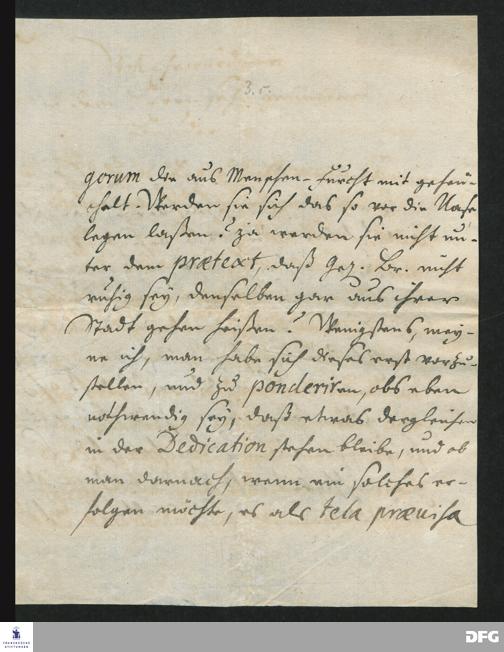 3. c.
gorum die aus Menschen-Furcht mit geheu-
chelt. Werden sie sich das so vor die Nase
legen laßen? ja werden sie nicht un-
ter dem prætext, daß Hr. Br. nicht
ruhig sey, denselben gar aus ihrer
Stadt gehen heißen? Wenigstens, mey-
ne ich, man habe sich dieses erst vorzu-
stellen, und zu ponderiren, obs eben
nothwendig sey, daß etwas dergleichen
in der Dedication stehen bleibe, und ob
man darnach, wenn ein solches er-
folgen möchte, es als tela prævisa
FRANCKESCHE
STIFTUNGEN
DFG